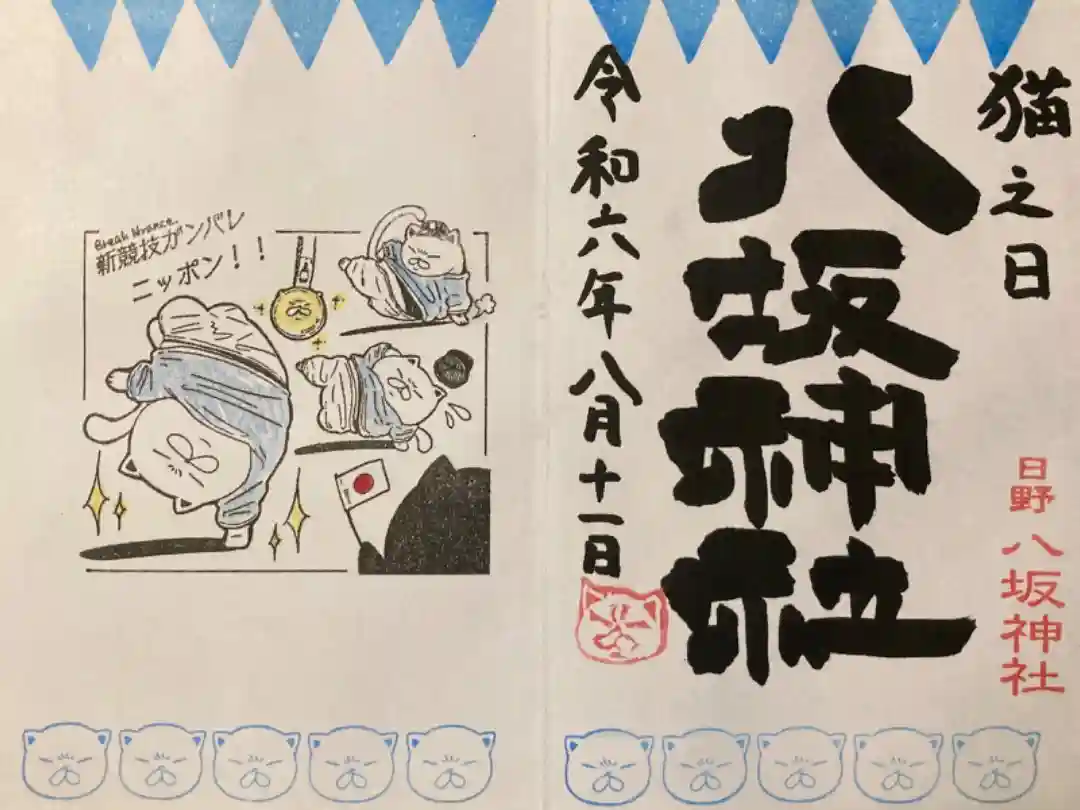 猫之日
八坂神社
令和六年八月十一日
日野
八坂神社
新競技ガンバレ
ニッポン！！